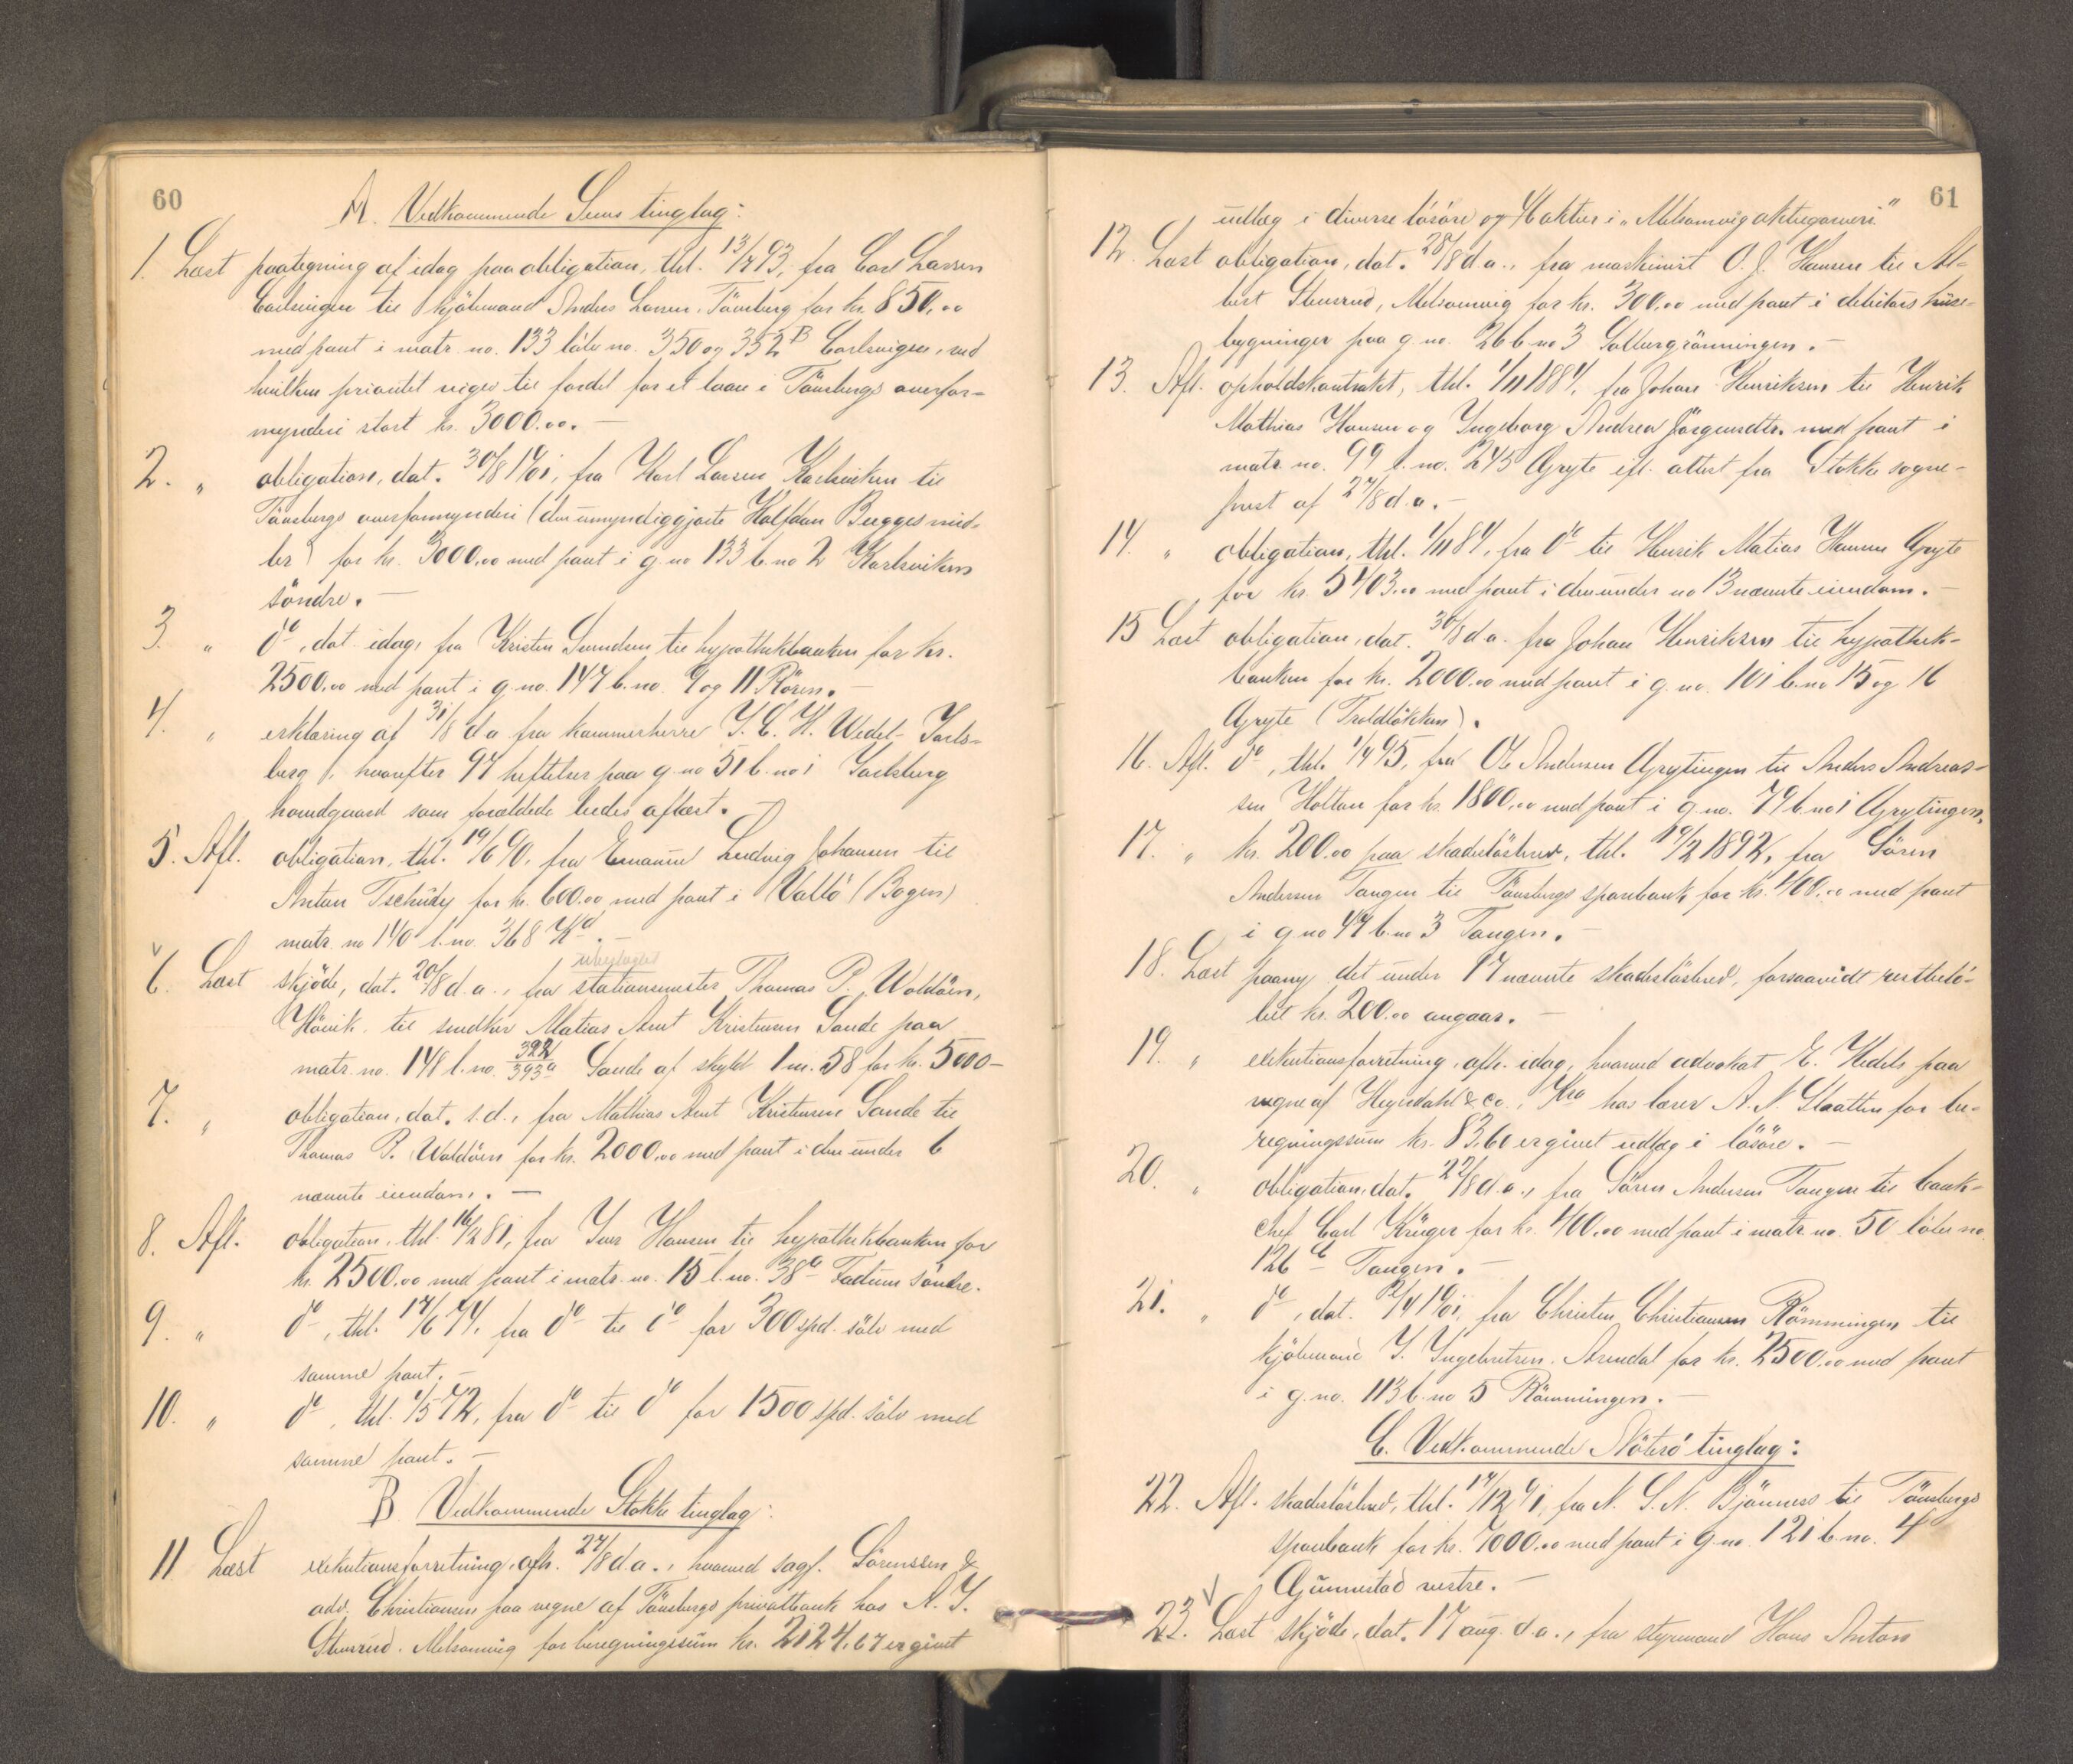 60
A. Vedkommende Sems tinglag:
1. Læst paategning af idag paa obligation, thl. 13/7 93, fra Carl Larsen
Carlsvigen til kjöbmand Anders Larsen, Tönsberg for kr. 850,00
med pant i matr. no. 133 løbe no. 350 og 352 B Carlsvigen, ved
hvilken prioritet viges til fordel for et laan i Tönsbergs overfor-
mynderi stort kr. 3000.00. –
2. „ obligation, dat. 30/8 1901, fra Karl Larsen Karlsviken til
Tönsbergs overformynderi (den umyndiggjorte Halfdan Bugges mid-
ler) for kr. 3000.00 med pant i g. no 133 b. no 2 Karlsviken
söndre. –
3. „ do, dat. idag, fra Kristen Svendsen til hypothekbanken for kr.
2500.00 med pant i g. no. 147 b. no. 9 og 11 Rören. –
4. „ erklæring af 31/8 d a fra kammerherre P. C. H. Wedel-Jarls-
berg, hvorefter 97 heftelser paa g. no 51 b. no 1 Jarlsberg
hovedgaard som forældede bedes aflæst. –
5. Afl. obligation, thl. 19/6 90, fra Emanuel Ludvig Johansen til
Anton Tschudy for kr. 600.00 med pant i Vallö (Bogen)
matr. no 140 l. no. 368
6. Læst skjöde, dat. 20/8 d. a., fra stationsmester Thomas P. Woldöen,
Hövik, til snedker Matias Amt Kristensen Sande paa
matr. no. 148 l. no. 392/393a Sande af skyld 1 m. 58 for kr. 5000 –
7. „ obligation, dat. s. d., fra Mathias Amt Kristensen Sande til
Thomas P. Woldöen for kr. 2000.00 med pant i den under 6
nævnte eiendom. –
8. Afl. obligation, thl. 16/2 81, fra Iver Hansen til hypothekbanken for
kr. 2500.00 med pant i matr. no. 15 l. no. 38a Fadum söndre.
9. „ do, thl. 17/6 74, fra do til do for 300 spd. sölv med
samme pant. –
10. „ do, thl. 1/5 72, fra do til do for 1500 spd. sölv med
samme pant. –
B Vedkommende Stokke tinglag:
11 Læst exekutionsforretning, afh. 27/8 d. a., hvorved sagf. Sörenssen &
adv. Christiansen paa vegne af Tönsbergs privatbank hos A. J.
Stensrud, Melsomvig for beregningssum kr. 2124,67 er givet
61
udlæg i diverse lösöre og 4 aktier i „Melsomvig aktiegarveri"
12. Læst obligation, dat. 28/8 d. a., fra maskinist O. J. Hansen til Al-
bert Stensrud, Melsomvig for kr. 300.00 med pant i debitors huse-
bygninger paa g. no. 26 b. no 3 Solbergrönningen. –
13. Afl. opholdskontrakt, thl. 1/11 1884, fra Johan Henriksen til Henrik
Mathias Hansen og Ingeborg Andrea Jörgensdtr. med pant i
matr. no. 99 l. no. 245 Gryte ifl. attest fra Stokke sogne-
prest af 27/8 d. a. –
14. „ obligation, thl. 1/11 84, fra do til Henrik Matias Hansen Gryte
for kr. 5403.00 med pant i den under no 13 nævnte eiendom. –
15 Læst obligation, dat. 30/8 d a. fra Johan Henriksen til hypothek-
banken for kr. 2000.00 med pant i g. no. 101 b. no 15 og 16
Gryte (Troldlökken).
16. Afl. do, thl. 1/4 95, fra Ole Andersen Grytingen til Anders Andreas-
sen Holtan for kr. 1800.00 med pant i g. no. 79 b. no 1 Grytingen.
17. „ kr. 200.00 paa skadeslösbrev, thl. 19/2 1892, fra Sören
Andersen Tangen til Tönsbergs sparebank for kr. 400.00 med pant
i g no 47 b. no 3 Tangen. –
18. Læst paany det under 17 nævnte skadeslösbrev, forsaavidt restbelö-
bet kr. 200.00 angaar. –
19. „ exekutionsforretning, afh. idag, hvorved advokat E. Hedels paa
vegne af Heyerdahl & co., Kra hos lærer A. N. Slaatten for be-
regningssum kr. 83,60 er givet udlæg i lösöre. –
20. „ obligation, dat. 22/8 d. a., fra Sören Andersen Tangen til bank-
chef Carl Krüger for kr. 400.00 med pant i matr. no. 50 löbe no.
126 c Tangen. –
21. „ do, dat. 12/4 1901, fra Christen Christiansen Römmingen til
kjöbmand J. Ingebretsen, Arendal for kr. 2500.00 med pant
i g. no. 113 b. no 5 Römmingen. –
C. Vedkommende Nöterö tinglag:
22. Afl. skadeslösbrev, thl. 17/12 91, fra N. S. N. Bjönness til Tönsbergs
sparebank for kr. 7000.00 med pant i g. no. 121 b. no. 4
Gunnestad vestre. –
23. Læst skjöde, dat. 17 aug. d. a., fra styrmand Hans Anton